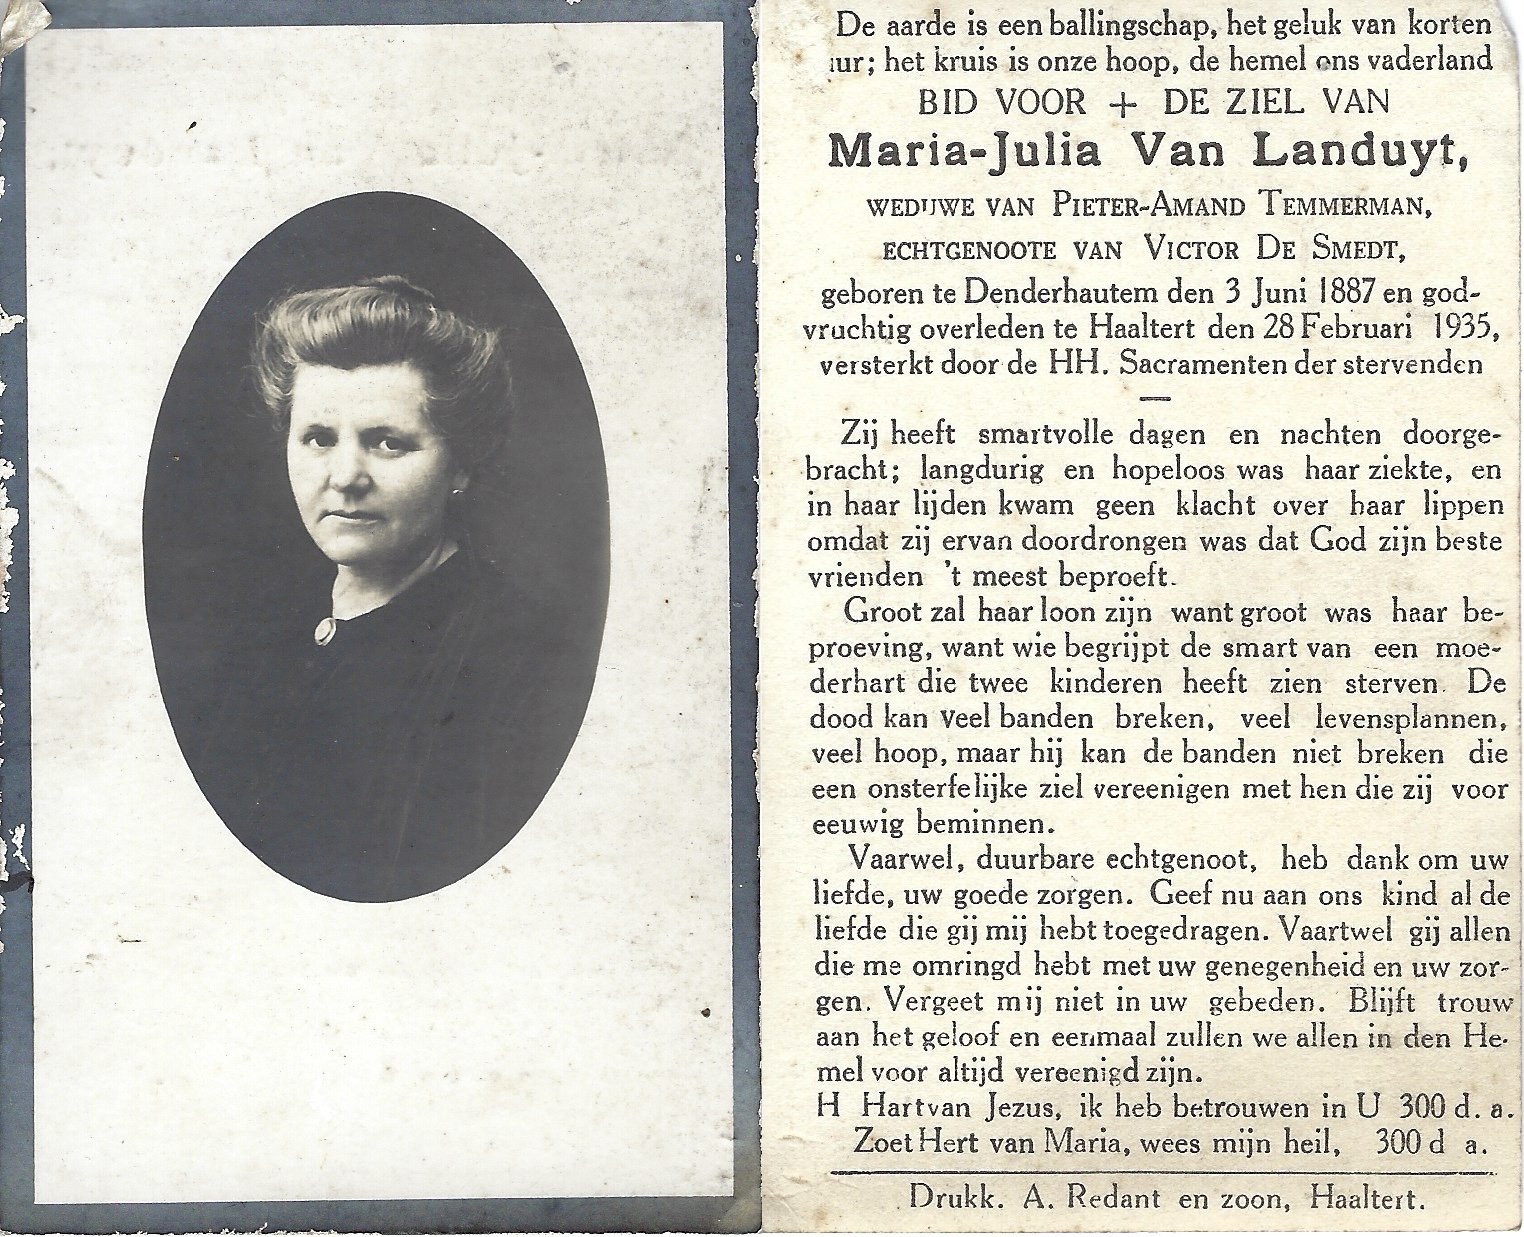 De aarde is een ballingschap, het geluk van korten
uur; het kruis is onze hoop, de hemel ons vaderland
BID VOOR + DE ZIEL VAN
Maria-Julia Van Landuyt,
WEDUWE VAN PIETER-AMAND TEMMERMAN,
ECHTGENOOTE VAN VICTOR DE SMEDT,
geboren te Denderhautem den 3 Juni 1887 en god-
vruchtig overleden te Haaltert den 28 Februari 1935,
versterkt door de HH. Sacramenten der stervenden
—
Zij heeft smartvolle dagen en nachten doorge-
bracht; langdurig en hopeloos was haar ziekte, en
in haar lijden kwam geen klacht over haar lippen
omdat zij ervan doordrongen was dat God zijn beste
vrienden 't meest beproeft.
Groot zal haar loon zijn want groot was haar be-
proeving, want wie begrijpt de smart van een moe-
derhart die twee kinderen heeft zien sterven. De
dood kan veel banden breken, veel levensplannen,
veel hoop, maar hij kan de banden niet breken die
een onsterfelijke ziel vereenigen met hen die zij voor
eeuwig beminnen.
Vaarwel, duurbare echtgenoot, heb dank om uw
liefde, uw goede zorgen. Geef nu aan ons kind al de
liefde die gij mij hebt toegedragen. Vaartwel gij allen
die me omringd hebt met uw genegenheid en uw zor-
gen. Vergeet mij niet in uw gebeden. Blijft trouw
aan het geloof en eenmaal zullen we allen in den He-
mel voor altijd vereenigd zijn.
H Hart van Jezus, ik heb betrouwen in U 300 d. a.
Zoet Hert van Maria, wees mijn heil, 300 d a.
Drukk. A. Redant en zoon, Haaltert.